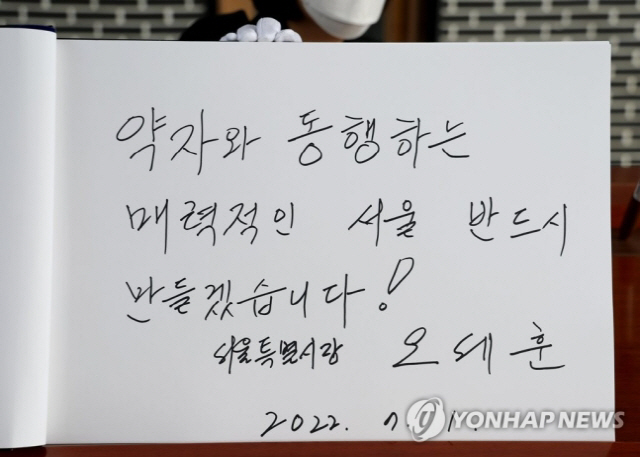 약자와 동행하는
매력적인 서울 반드시
만들겠습니다!
서울특별시장 오세훈
2022. 7. 1.
YONHAP NEWS